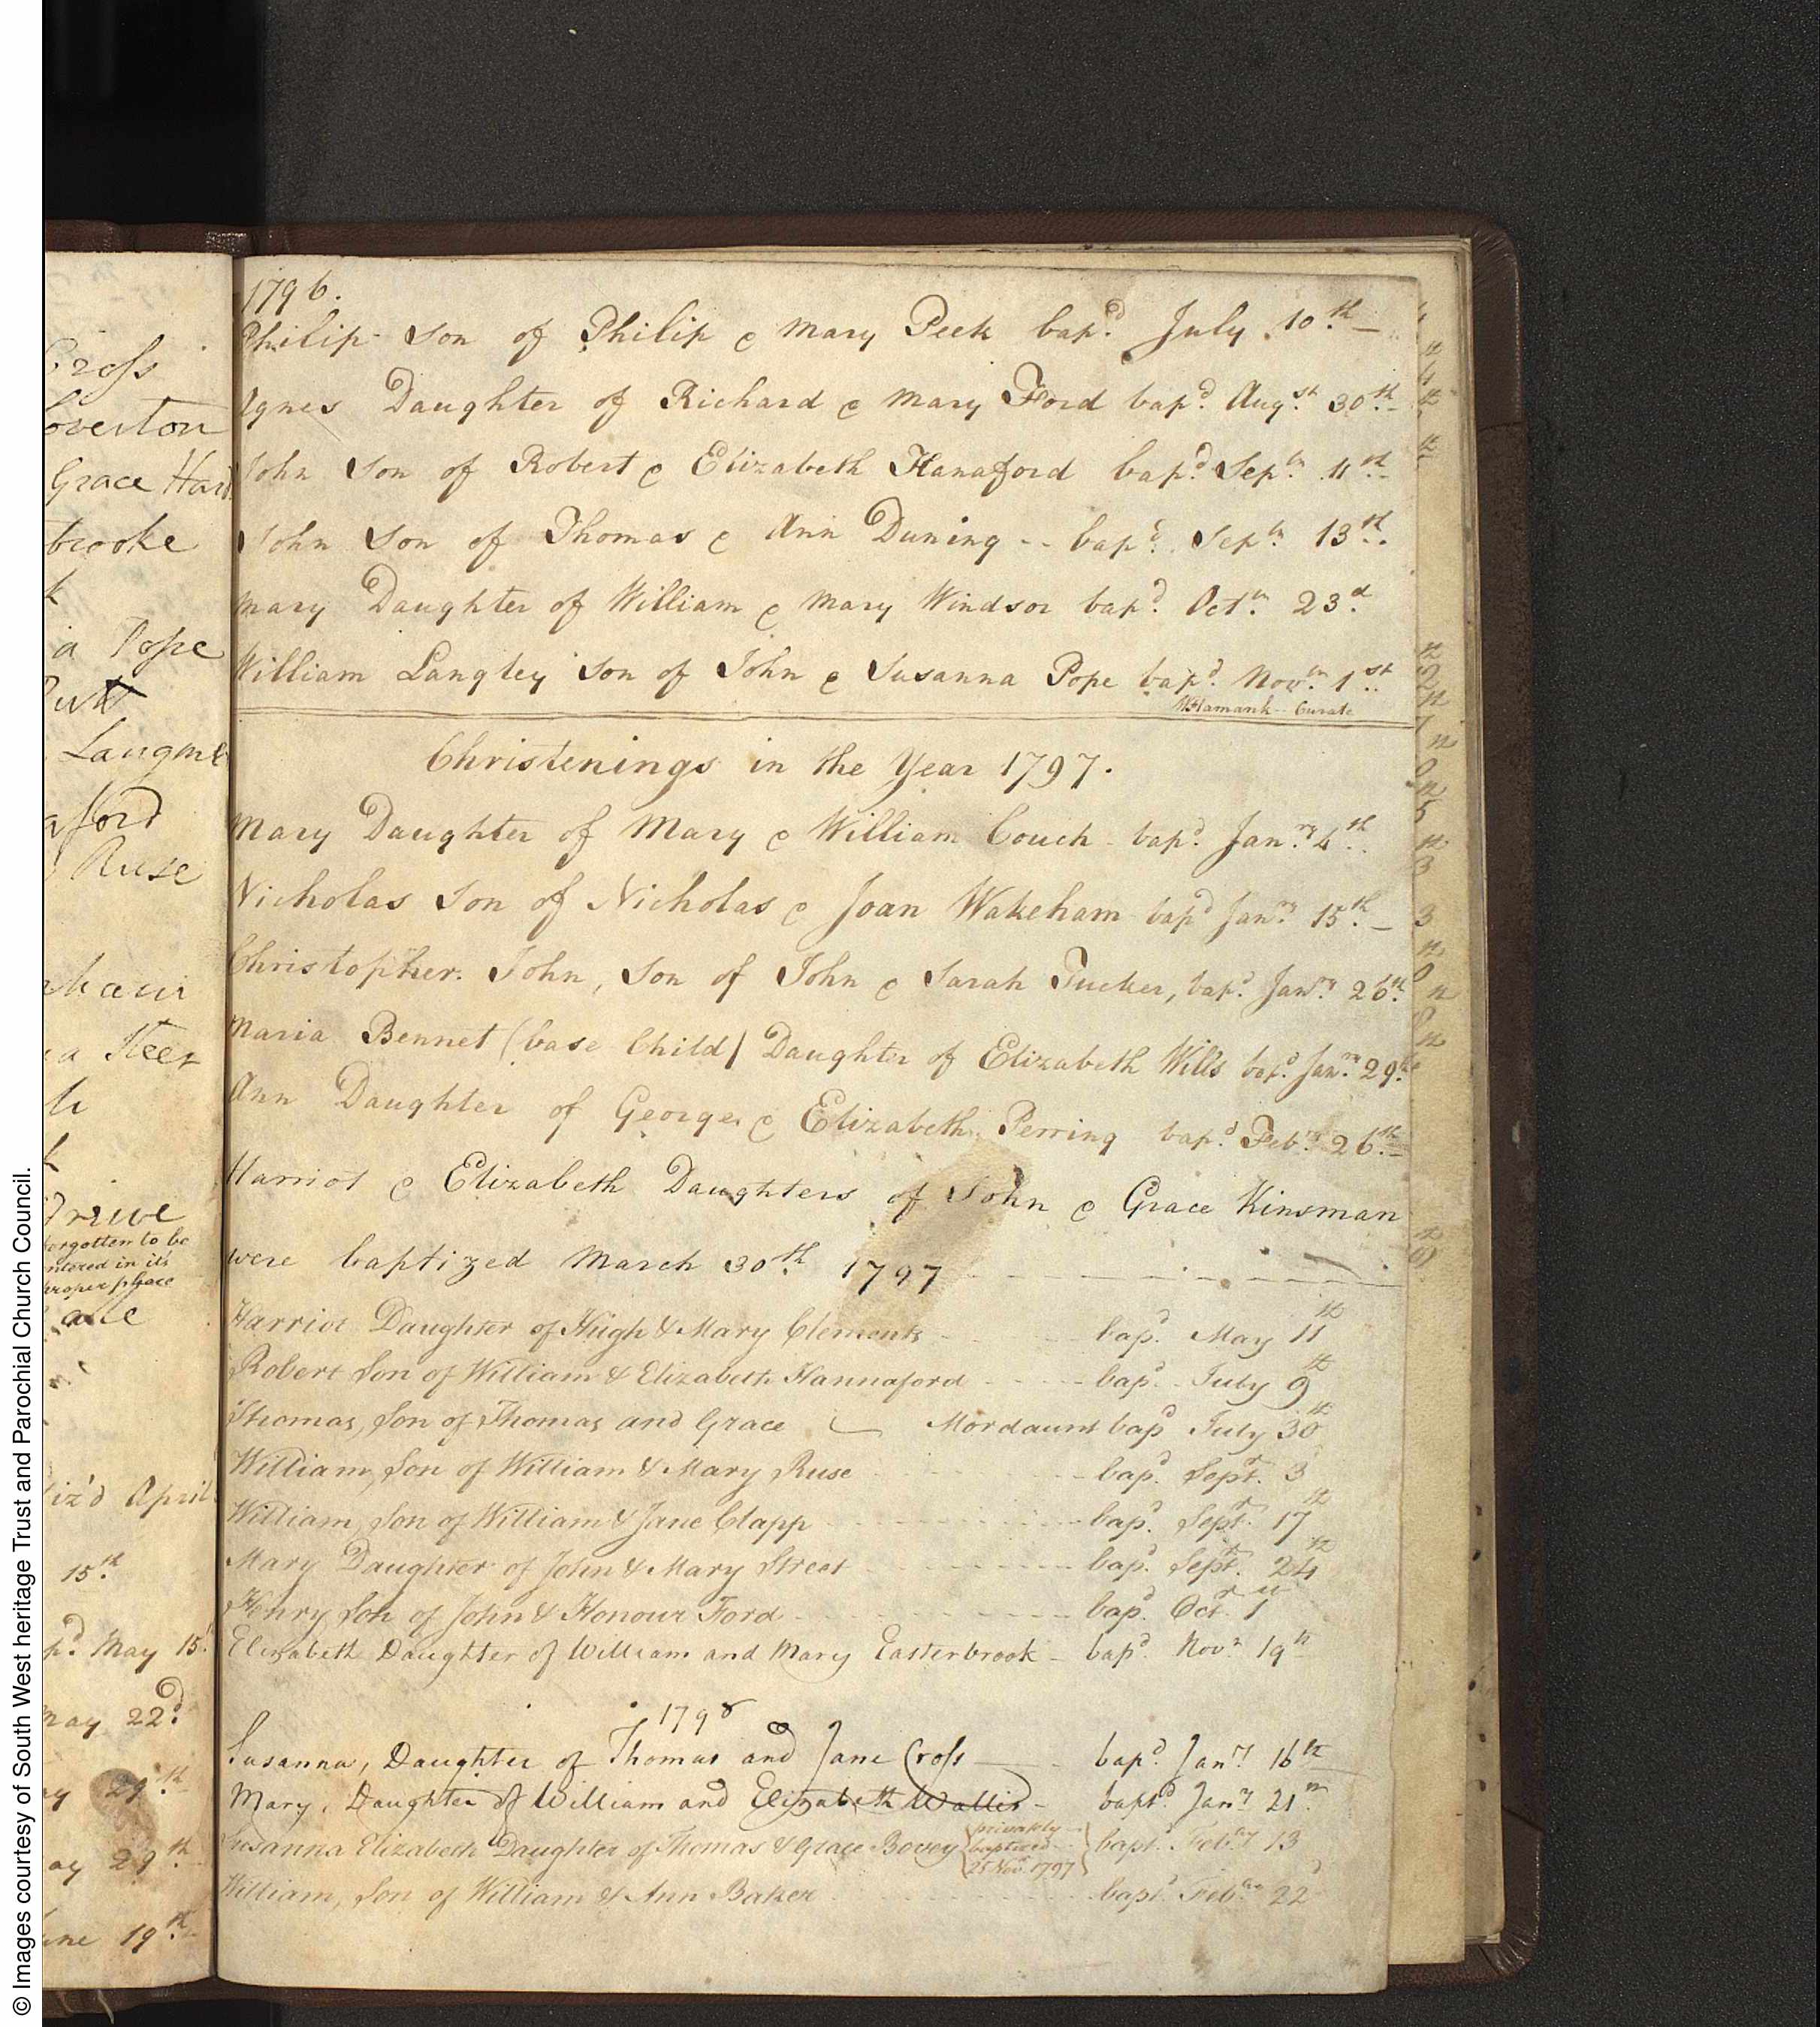 © Images courtesy of South West heritage Trust and Parochial Church Council.
Cross
overton
Grace Hard
brooke
k
a Pope
Langm
aford
Ruse
a Steer
h
k
Drewe
forgotten to be
entered in it's
proper place
iz'd April
15th
pd May 15
May 22d
29th
ay 29th
une 19th
1796.
Philip Son of Philip & Mary Peek bap.d July 10.th
Agnes Daughter of Richard & Mary Ford bap.d Aug.st 30.th
John Son of Robert & Elizabeth Hanaford bap.d Sep.br 11.th
John Son of Thomas & Ann Duning -- bap.d Sep.br 13.th
Mary Daughter of William & Mary Windsor bap.d Oct.br 23.d
William Langley Son of John & Susanna Pope bap.d Nov.br 1.st
W Hamank - Curate
Christenings in the Year 1797.
Mary Daughter of Mary & William Couch bap.d Jan.ry 4.th
Nicholas Son of Nicholas & Joan Wakeham bap.d Jan.ry 15.th
Christopher John, Son of John & Sarah Tucker, bap.d Jan.ry 26.th
Maria Bennet (base Child) Daughter of Elizabeth Wills bap.d Jan.ry 29.th
Ann Daughter of George & Elizabeth Perring bap.d Feb.ry 26.th
Harriot & Elizabeth Daughters of John & Grace Kinsman
were baptized March 30.th 1797
Harriot Daughter of Hugh & Mary Clements bap.d May 11th
Robert Son of William & Elizabeth Hannaford bap.d July 9th
Thomas, Son of Thomas and Grace Mordaunt bapd July 30th
William, Son of William & Mary Ruse bap.d Sept.r 3
William, Son of William & Jane Clapp bap.d Sept.r 17th
Mary Daughter of John & Mary Street bap.d Sept.r 24th
Henry Son of John & Honour Ford bap.d Oct.r 1st
Elizabeth Daughter of William and Mary Easterbrook - bap.d Nov.r 19th
1798
Susanna, Daughter of Thomas and Jane Cross bap.d Jan.ry 16th
Mary, Daughter of William and Elizabeth Wallis - bapt.d Jan.ry 21st
Susanna Elizabeth Daughter of Thomas & Grace Bovey {privately baptized 25 Nov.r 1797} bapt.d Feb.ry 13
William, Son of William & Ann Baker bapt.d Feb.ry 22d